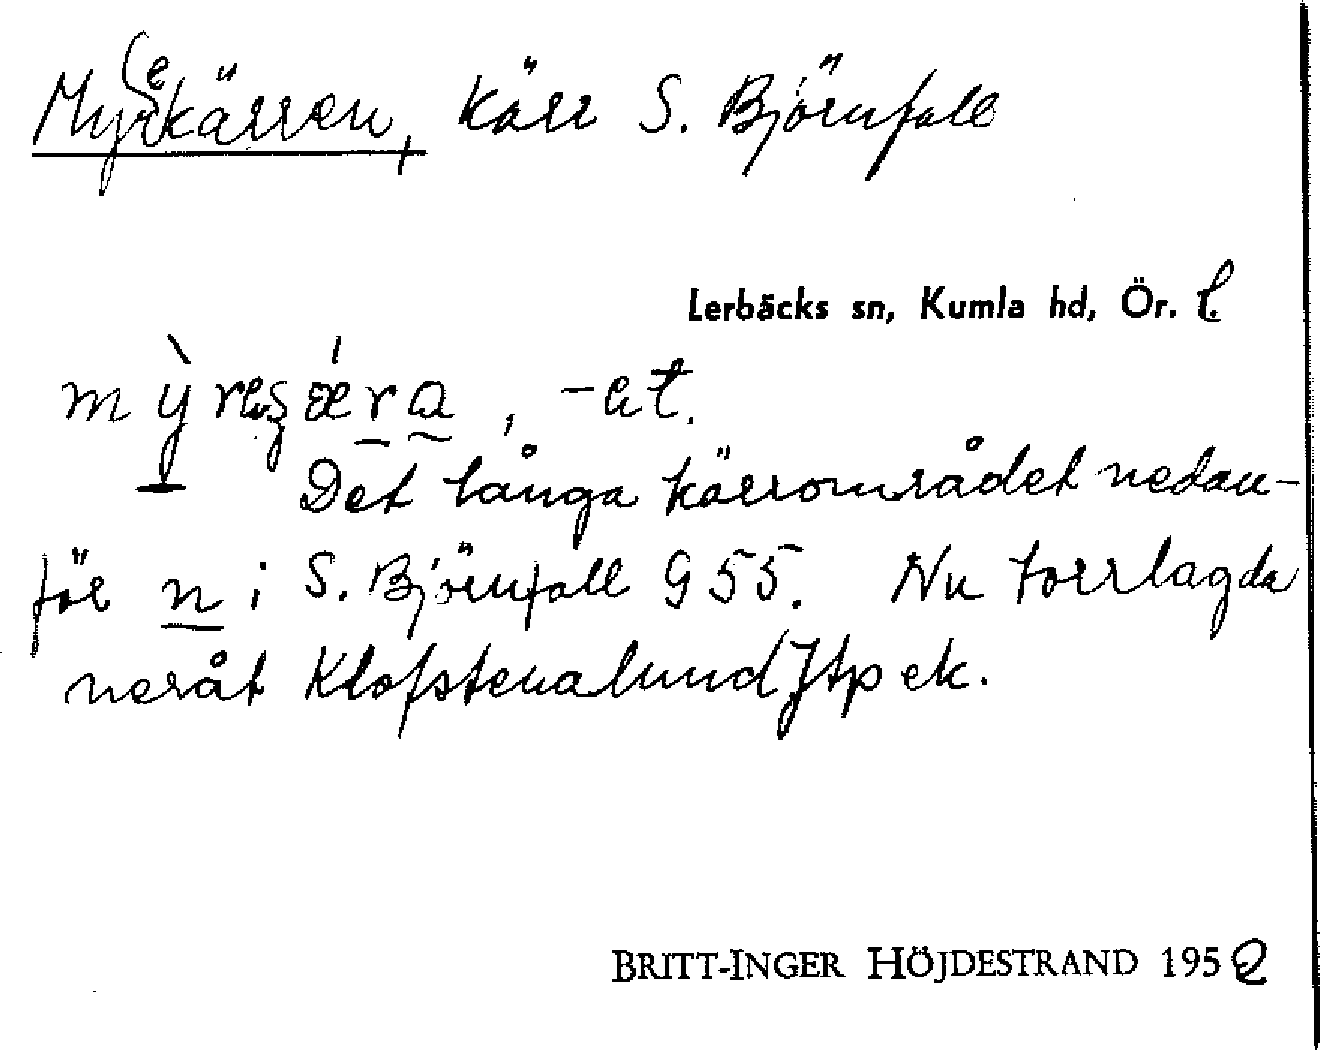 Myrekärren, kärr S. Björnfall
Lerbäcks sn, Kumla hd, Ör. l.
-et.
Det långa kärrområdet nedan-
för n i S. Björnfall 955. Nu torrlagda
neråt Klofstenalund Jtp ek.
BRITT-INGER HÖJDESTRAND 1952